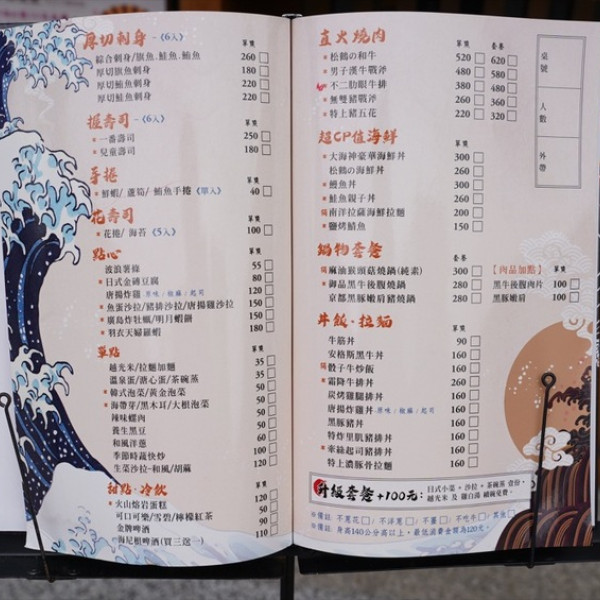 厚切刺身-《6入》 單價
綜合刺身/旗魚、鮭魚、鮪魚 260
厚切旗魚刺身 180
厚切鮪魚刺身 220
厚切鮭魚刺身 220
握壽司-《6入》 單價
一番壽司 250
兒童壽司 180
手捲 單價
鮮蝦/蘆筍/鮪魚手捲《單入》 40
花壽司 單價
花捲/海苔《5入》 100
點心 單價
波浪薯條 55
日式金磚豆腐 80
唐揚炸雞 原味/椒麻/起司 120
魚蛋沙拉/豬排沙拉/唐揚雞沙拉 150
廣島炸牡蠣/明月蝦餅 150
羽衣天婦羅蝦 180
單點 單價
越光米/拉麵加麵 35
溫泉蛋/溏心蛋/茶碗蒸 35
韓式泡菜/黃金泡菜 50
海帶芽/黑木耳/大根泡菜 50
辣味螺肉 50
養生黑豆 50
和風洋蔥 60
季節時蔬快炒 100
生菜沙拉-和風/胡麻 120
甜點·冷飲 單價
火山熔岩蛋糕 120
可口可樂/雪碧/檸檬紅茶 50
金牌啤酒 90
海尼根啤酒(買三送一) 110
直火燒肉 單價 套餐
松鶴の和牛 520 620
男子漢牛戰斧 480 580
不二肋眼牛排 380 480
無雙豬戰斧 260 360
特上豬五花 220 320
桌號
人數
外帶
超CP值海鮮 單價
大海神豪華海鮮丼 300
松鶴の海鮮丼 260
鰻魚丼 300
鮭魚親子丼 260
南洋拉薩海鮮拉麵 200
鹽烤鯖魚 150
鍋物套餐 套餐
麻油猴頭菇燒鍋(純素) 300
御品黑牛後腹燒鍋 280
京都黑豚嫩肩豬燒鍋 280
【肉品加點】 單價
黑牛後腹肉片 100
黑豚嫩肩 100
丼飯·拉麵 單價
牛筋丼 90
安格斯黑牛丼 160
骰子牛炒飯 160
霜降牛排丼 260
炭烤雞腿排丼 160
唐揚炸雞丼 原味/椒麻/起司 160
黑豚豬丼 160
特炸里肌豬排丼 160
牽絲起司豬排丼 160
特上濃豚骨拉麵 160
升級套餐+100元:
日式小菜+沙拉+茶碗蒸 壹份,
越光米 及 雞白湯 續碗免費。
※備註:不蔥花□/不洋蔥□/不薑□/不吃牛□/其他□
※備註:身高140公分高以上,最低消費金額為120元。